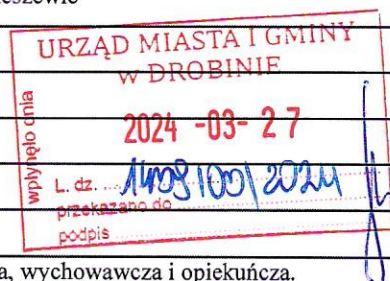 URZĄD MIASTA I GMINY
W DROBINIE
wpłynęło dnia
2024 -03- 27
L. dz.
przekazano do
podpis
a, wychowawcza i opiekuńcza.